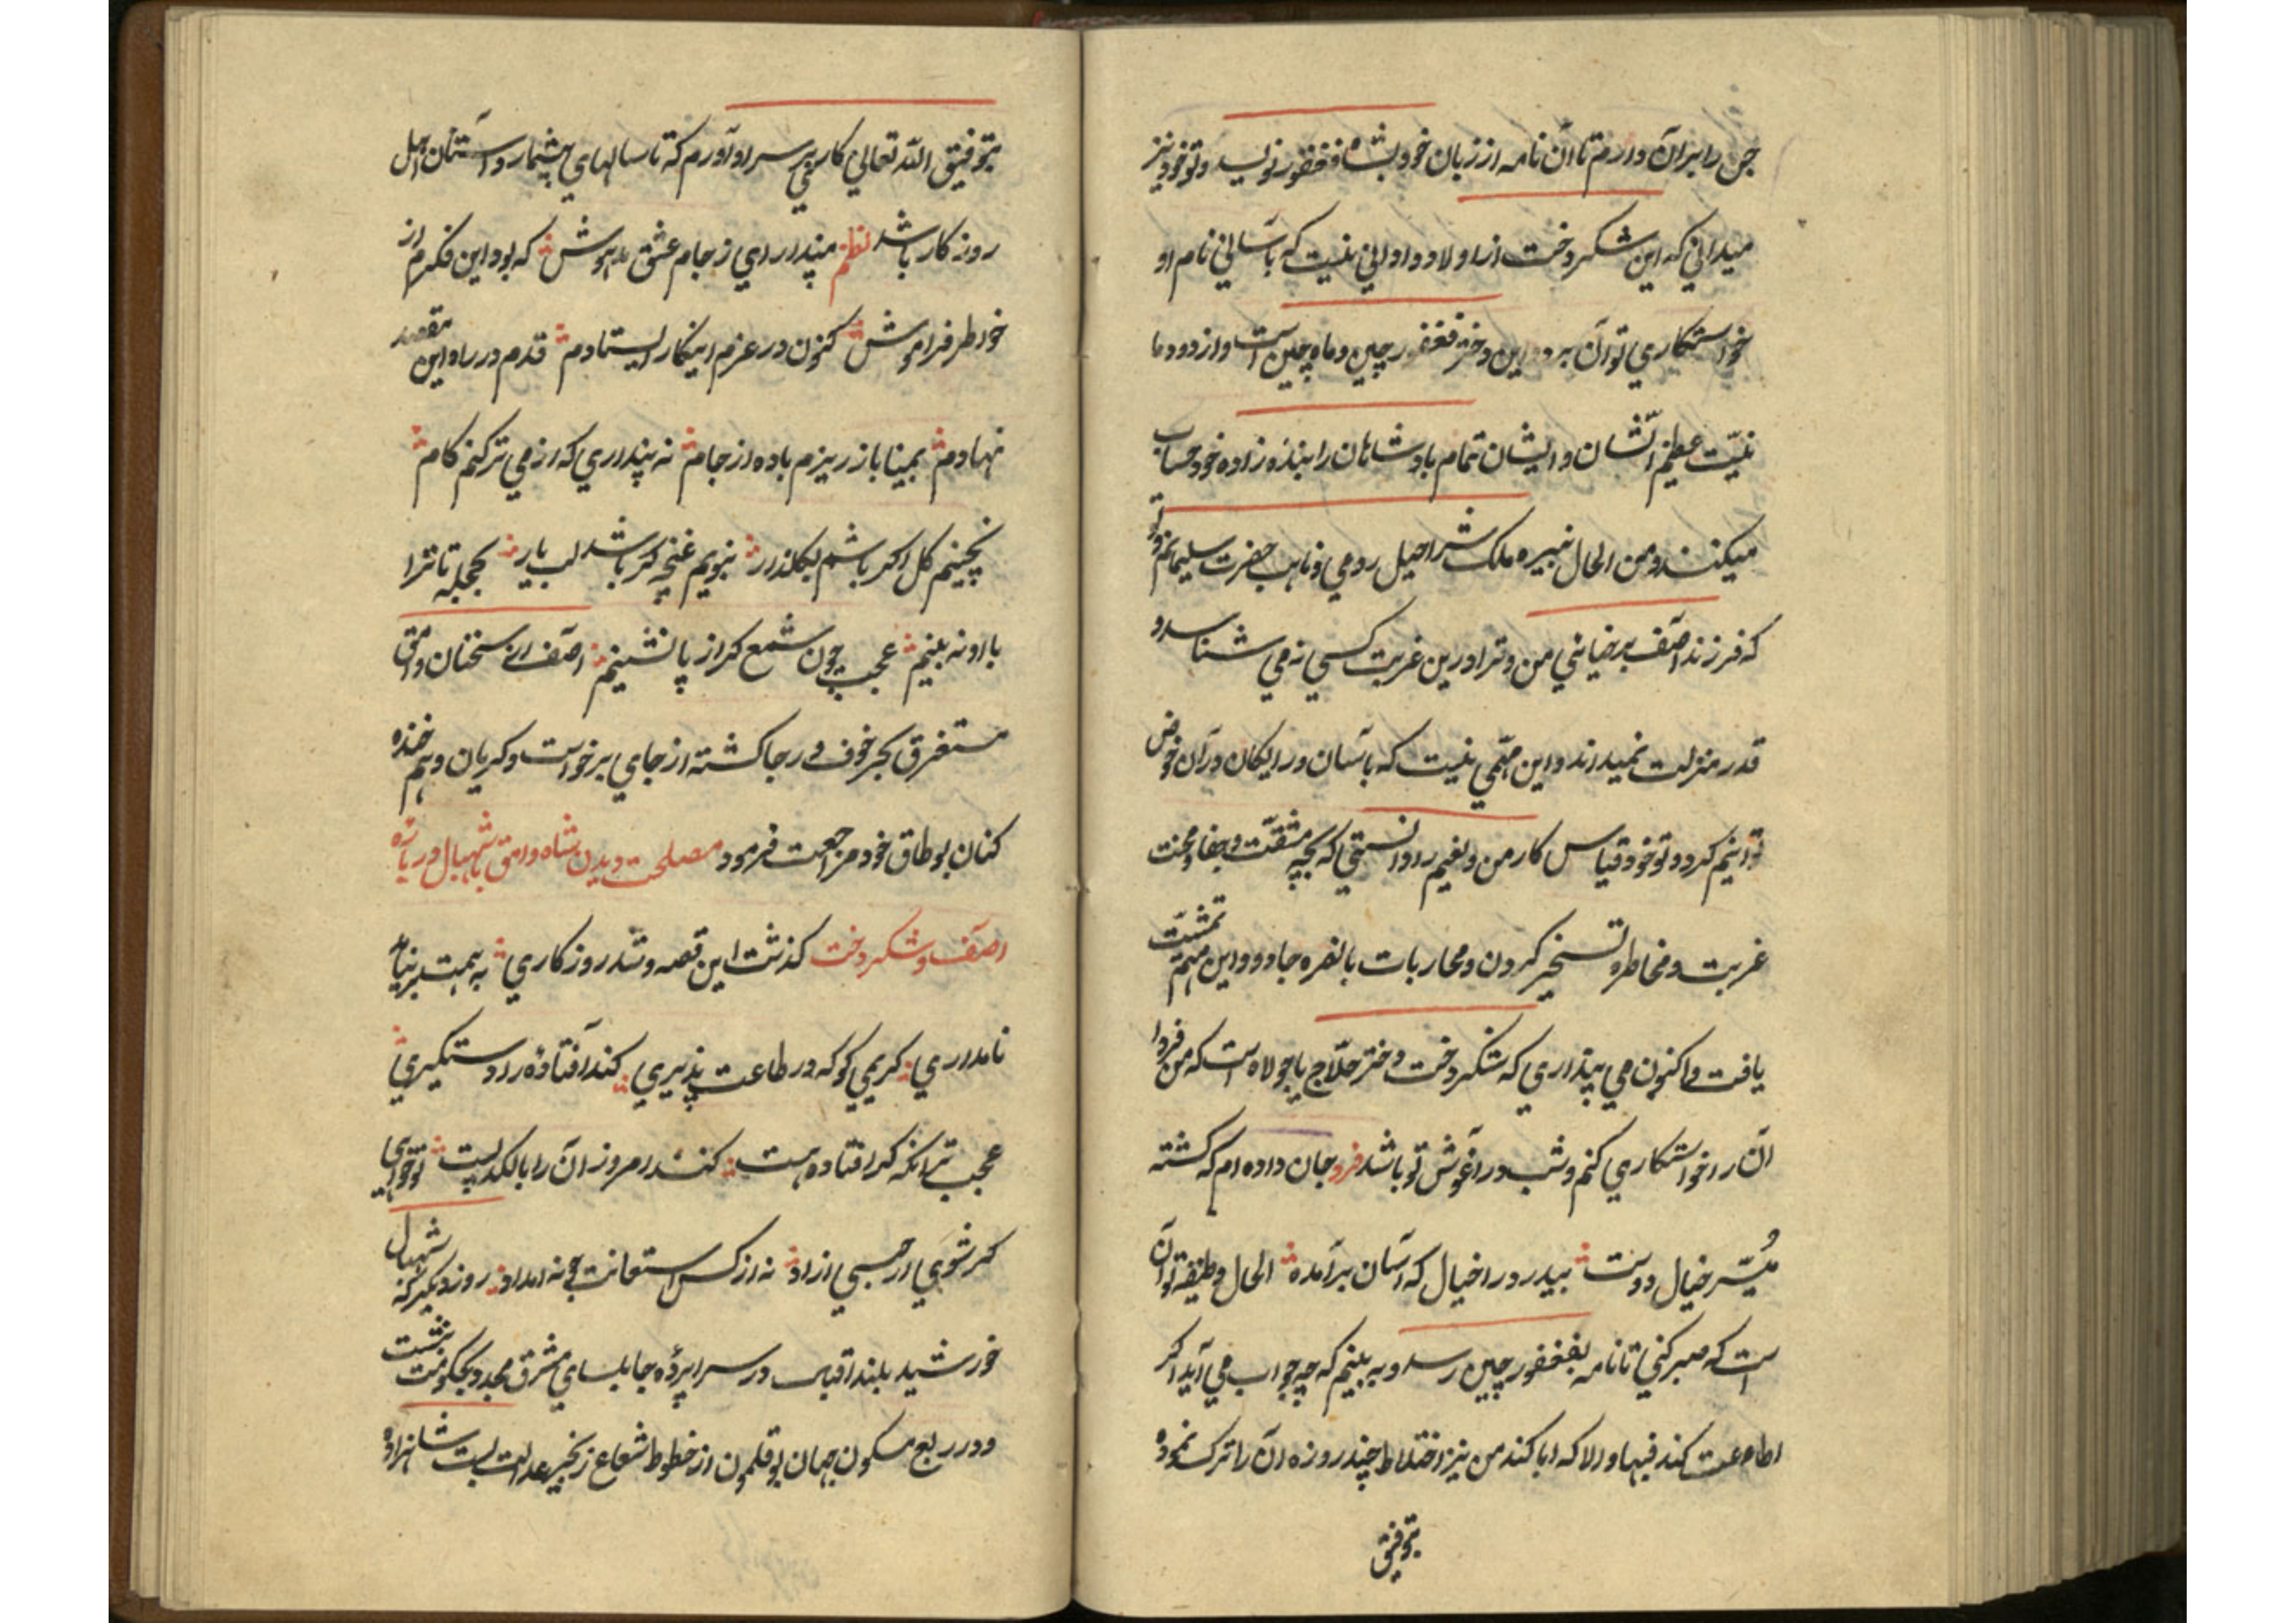 جن را بران دارم تا آن نامه از زبان خود بشاه فغفور نویسد و تو خود نیز
میدانی که این شکردخت از اولاد و ادانی نیست که باسانی نام او
خواستکاری توان برد این دختر فغفور چین و ماه چین است و از دودما
نیست عظیم الشان و ایشان تمام بادشاهان را بنده زاده خود حساب
میکنند و من الحال نبیره ملک شراحیل رومی و نایب حضرت سلیمانم و تو
که فرزند آصف برخیائی من و ترا درین غربت کسی نه می شناسد و
قدر منزلت نمیداند و این مهمی نیست که باسان و رایکان در آن خوض
توانیم کرد و تو خود قیاس کار من و نعیم را دانستی که بچه مشقت و جفا و محنت
غربت و مخاطره تسخیر کردن و محاربات بالفره جادو و این مهم تمشیت
یافت و اکنون می پنداری که شکردخت دختر حلاج یا جولاه است که من فردا
آن را خواستکاری کنم و شب در آغوش تو باشد فرد جان داده ام که کشته
میسر خیال دوست بیدرد را خیال که آسان برآمده الحال وظیفه تو آن
است که صبر کنی تا نامه بفغفور چین رسد و به بینم که چه جواب می آید اکر
اطاعت کند فبها و الا که ابا کند من نیز اختلاط چند روزه آن را ترک نموده
بتوفیق
بتوفیق الله تعالی کار بر سر او آورم که تا سالهای بیشمار داستان اهل
روزکار باشد نظم مپندار ای ز جام عشق مدهوش که بود این فکرم از
خواطر فراموش کنون در عزم اینکار ایستادم قدم در راه این مقصد
نهادم بمینا باز ریزم باده از جام نه پنداری که از می تر کنم کام
نچینم کل اکر باشم بکلذار نبویم غنچه کر باشد لب یار بحجله تا ترا
با او نه بینم عجب چون شمع کر از پا نشینم آصف از سخنان وامق
مستغرق بحر خوف و رجا کشته از جای برخواست و کریان و هم خنده
کنان بوطاق خود مراجعت فرمود مصلحت دیدن شاه وامق باشهبال در باره
آصف و شکردخت کذشت این قصه و شد روزکاری به همت برنیامد
نامداری کریمی کو که در طاعت پذیری کند افتاده را دستکیری
عجب تر آنکه کر افتاده هست کنند امروز آن را با لکد پست تو خواهی
کر شوی ار حبسی ازاد نه از کس استعانت جو نه امداد روز دیکر که شهبال
خورشید بلند اقبال در سراپرده جابلسای مشرق مجدد بحکومت نشست
و در ربع مسکون جهان بوقلمون از خطوط شعاع زنجیر عدالت بست شاهزاده